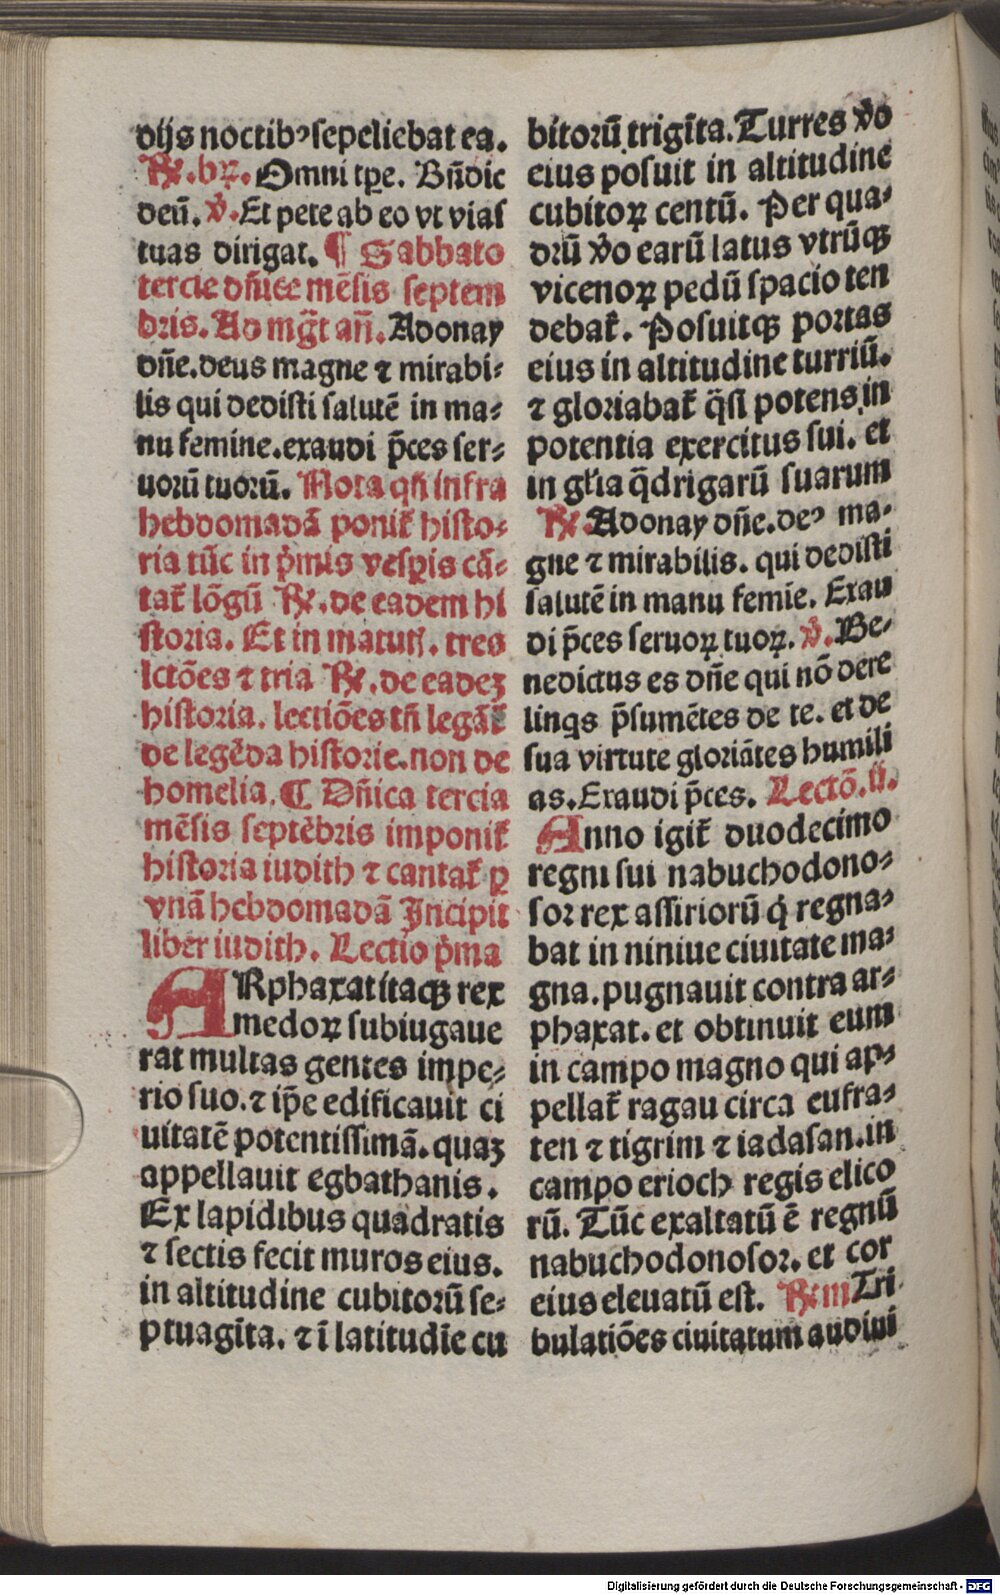 dijs noctibꝰ sepeliebat ea.
℟. br̄. Omni tp̄e. Bn̄dic
deū. ℣. Et pete ab eo vt vias
tuas dirigat. ¶ Sabbato
tercie dn̄ice mēsis septem
bris. Ad mgt̄ an̄. Adonay
dn̄e. deus magne ⁊ mirabi⸗
lis qui dedisti salutē in ma⸗
nu femine. exaudi p̄ces ser⸗
uorū tuorū. Nota qn̄ infra
hebdomadā ponit̄ histo⸗
ria tūc in p̄mis vesꝑis cā⸗
tat̄ lōgū ℟. de eadem hi
storia. Et in matutꝭ. tres
lctōes ⁊ tria ℟. de eadeꝫ
historia. lectiōes tn̄ legāt̄
de legēda historie. non de
homelia. ¶ Dn̄ica tercia
mēsis septēbris imponit̄
historia iudith ⁊ cantat̄ ꝑ
vnā hebdomadā Incipit
liber iudith. Lectio p̄ma
ARphaxat itaqꝫ rex
medoꝝ subiugaue
rat multas gentes impe⸗
rio suo. ⁊ ip̄e edificauit ci
uitatē potentissimā. quaꝫ
appellauit egbathanis.
Ex lapidibus quadratis
⁊ sectis fecit muros eius.
in altitudine cubitorū se⸗
ptuagīta. ⁊ ī latitudīe cu
bitorū trigīta. Turres v̄o
eius posuit in altitudine
cubitoꝝ centū. Per qua⸗
drū v̄o earū latus vtrūqꝫ
vicenoꝝ pedū spacio ten
debat̄. Posuitqꝫ portas
eius in altitudine turriū.
⁊ gloriabat̄ q̄si potens in
potentia exercitus sui. et
in gl̄ia q̄drigarū suarum
℟. Adonay dn̄e. deꝰ ma⸗
gne ⁊ mirabilis. qui dedisti
salutē in manu femīe. Exau
di p̄ces seruoꝝ tuoꝝ. ℣. Be⸗
nedictus es dn̄e qui nō dere
linqs p̄sumētes de te. et de
sua virtute gloriātes humili
as. Exaudi p̄ces. Lectō. ij.
Anno igit̄ duodecimo
regni sui nabuchodono⸗
sor rex assiriorū q̇ regna⸗
bat in niniue ciuitate ma⸗
gna. pugnauit contra ar⸗
phaxat. et obtinuit eum
in campo magno qui ap⸗
pellat̄ ragau circa eufra⸗
ten ⁊ tigrim ⁊ iadasan. in
campo erioch regis elico
rū. Tūc exaltatū ē regnū
nabuchodonosor. et cor
eius eleuatū est. ℟. m Tri
bulatiōes ciuitatum audiui
Digitalisierung gefördert durch die Deutsche Forschungsgemeinschaft - DFG